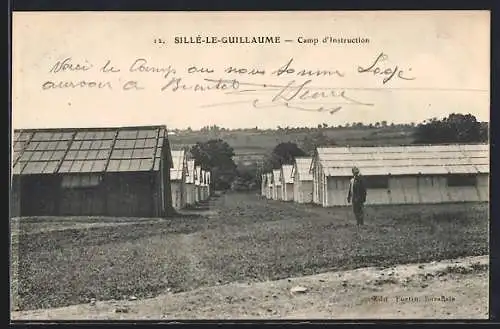 12. SILLÉ-LE-GUILLAUME — Camp d'Instruction
Voici le Camp ou nous somme Logé
aurevoir à Bientot
Edit. Fortin,